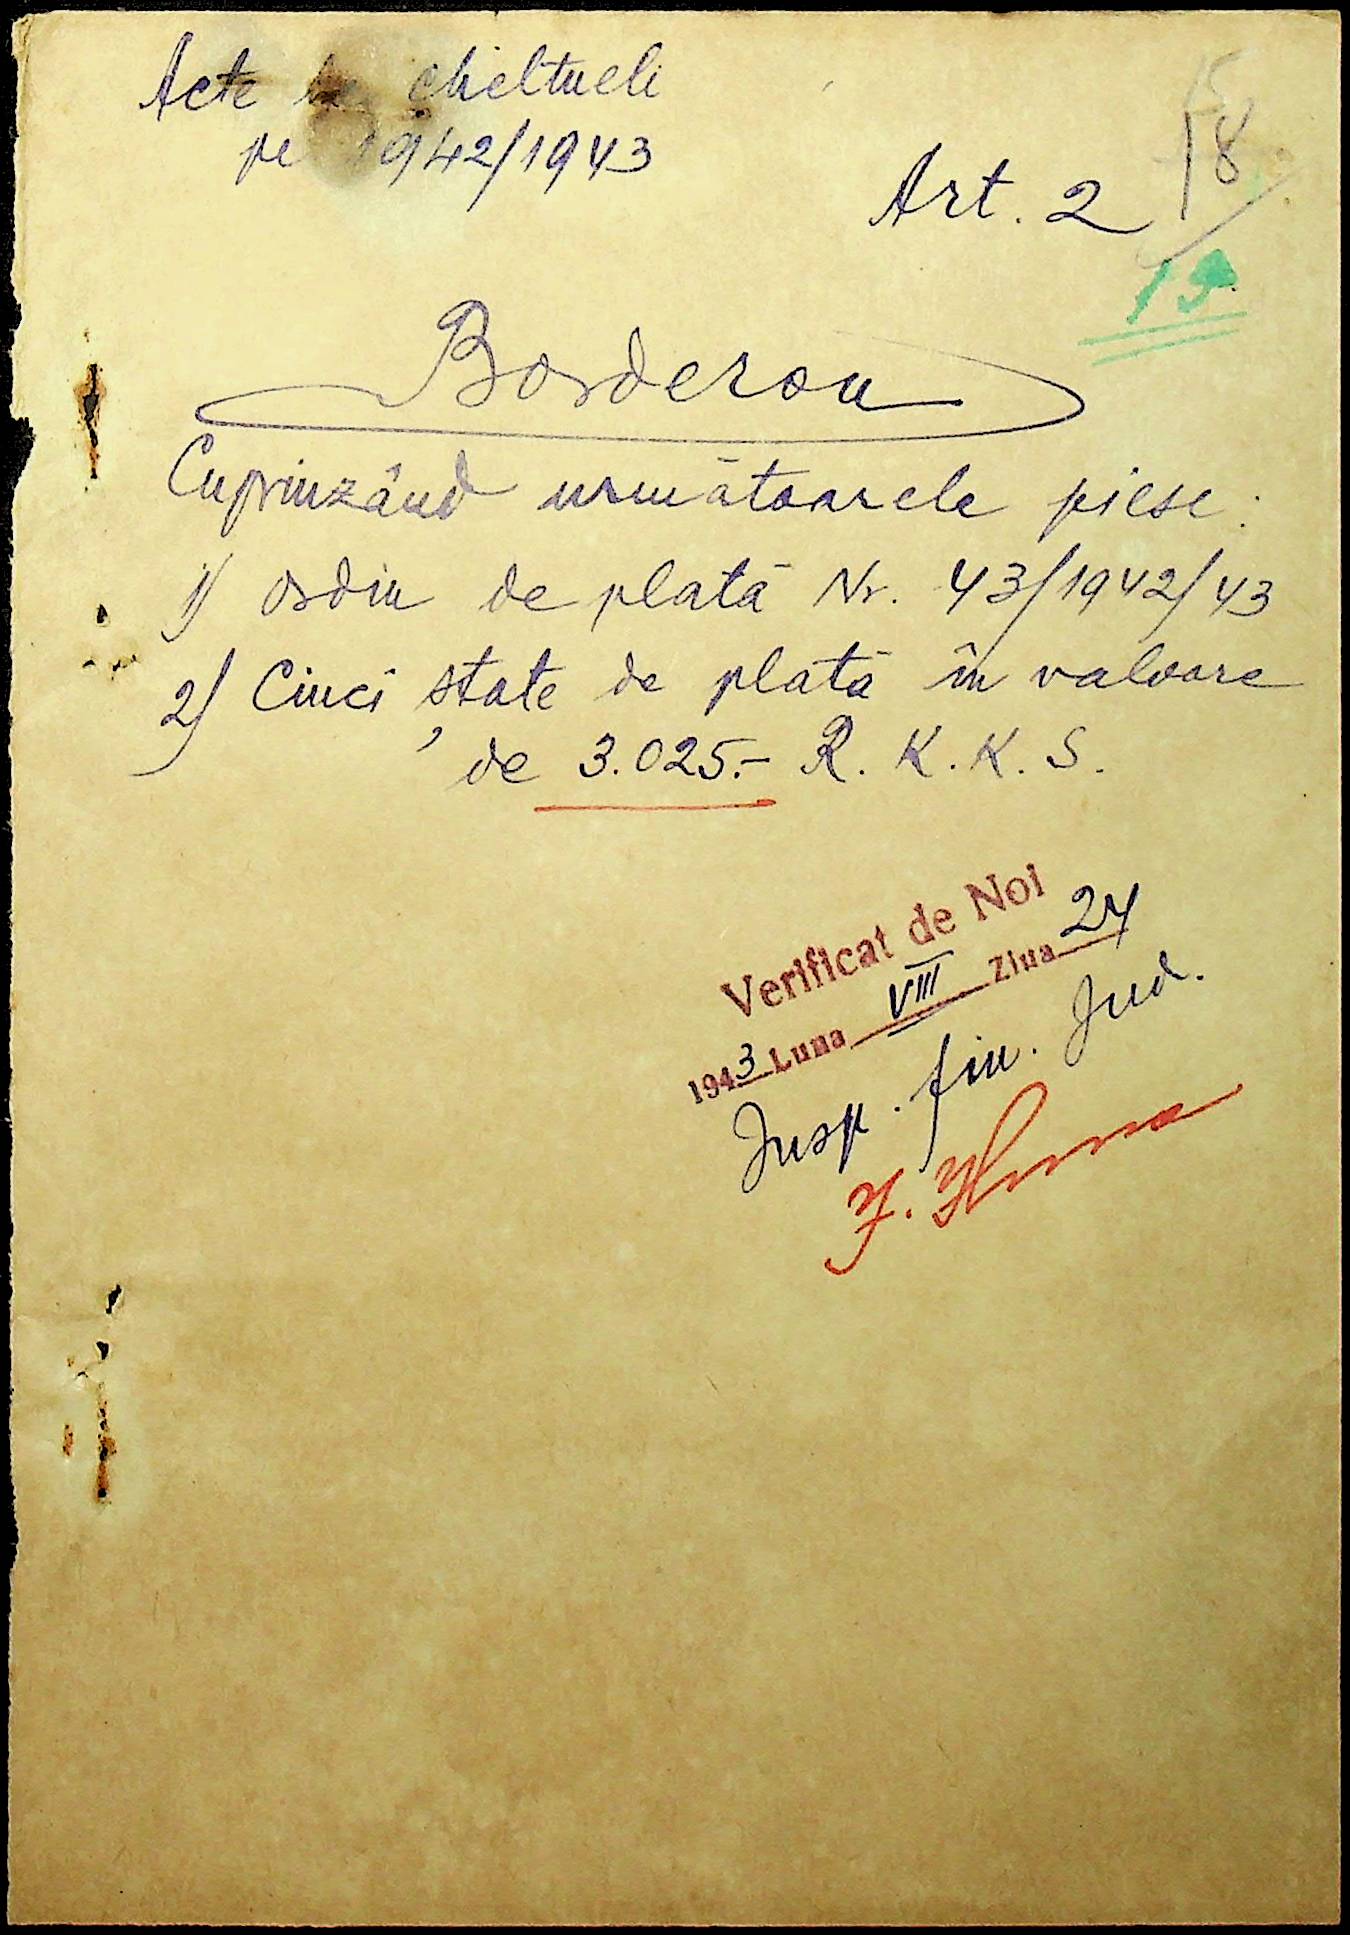 Acte de cheltueli
pe 1942/1943
18
Art. 2
19
Borderou
Cuprinzând următoarele piese:
1) Ordin de plată Nr. 43/1942/43
2) Cinci state de plată în valoare
de 3.025.- R.K.K.S.
Verificat de Noi
1943 Luna VIII Ziua 24
Insp. fin. Jud.